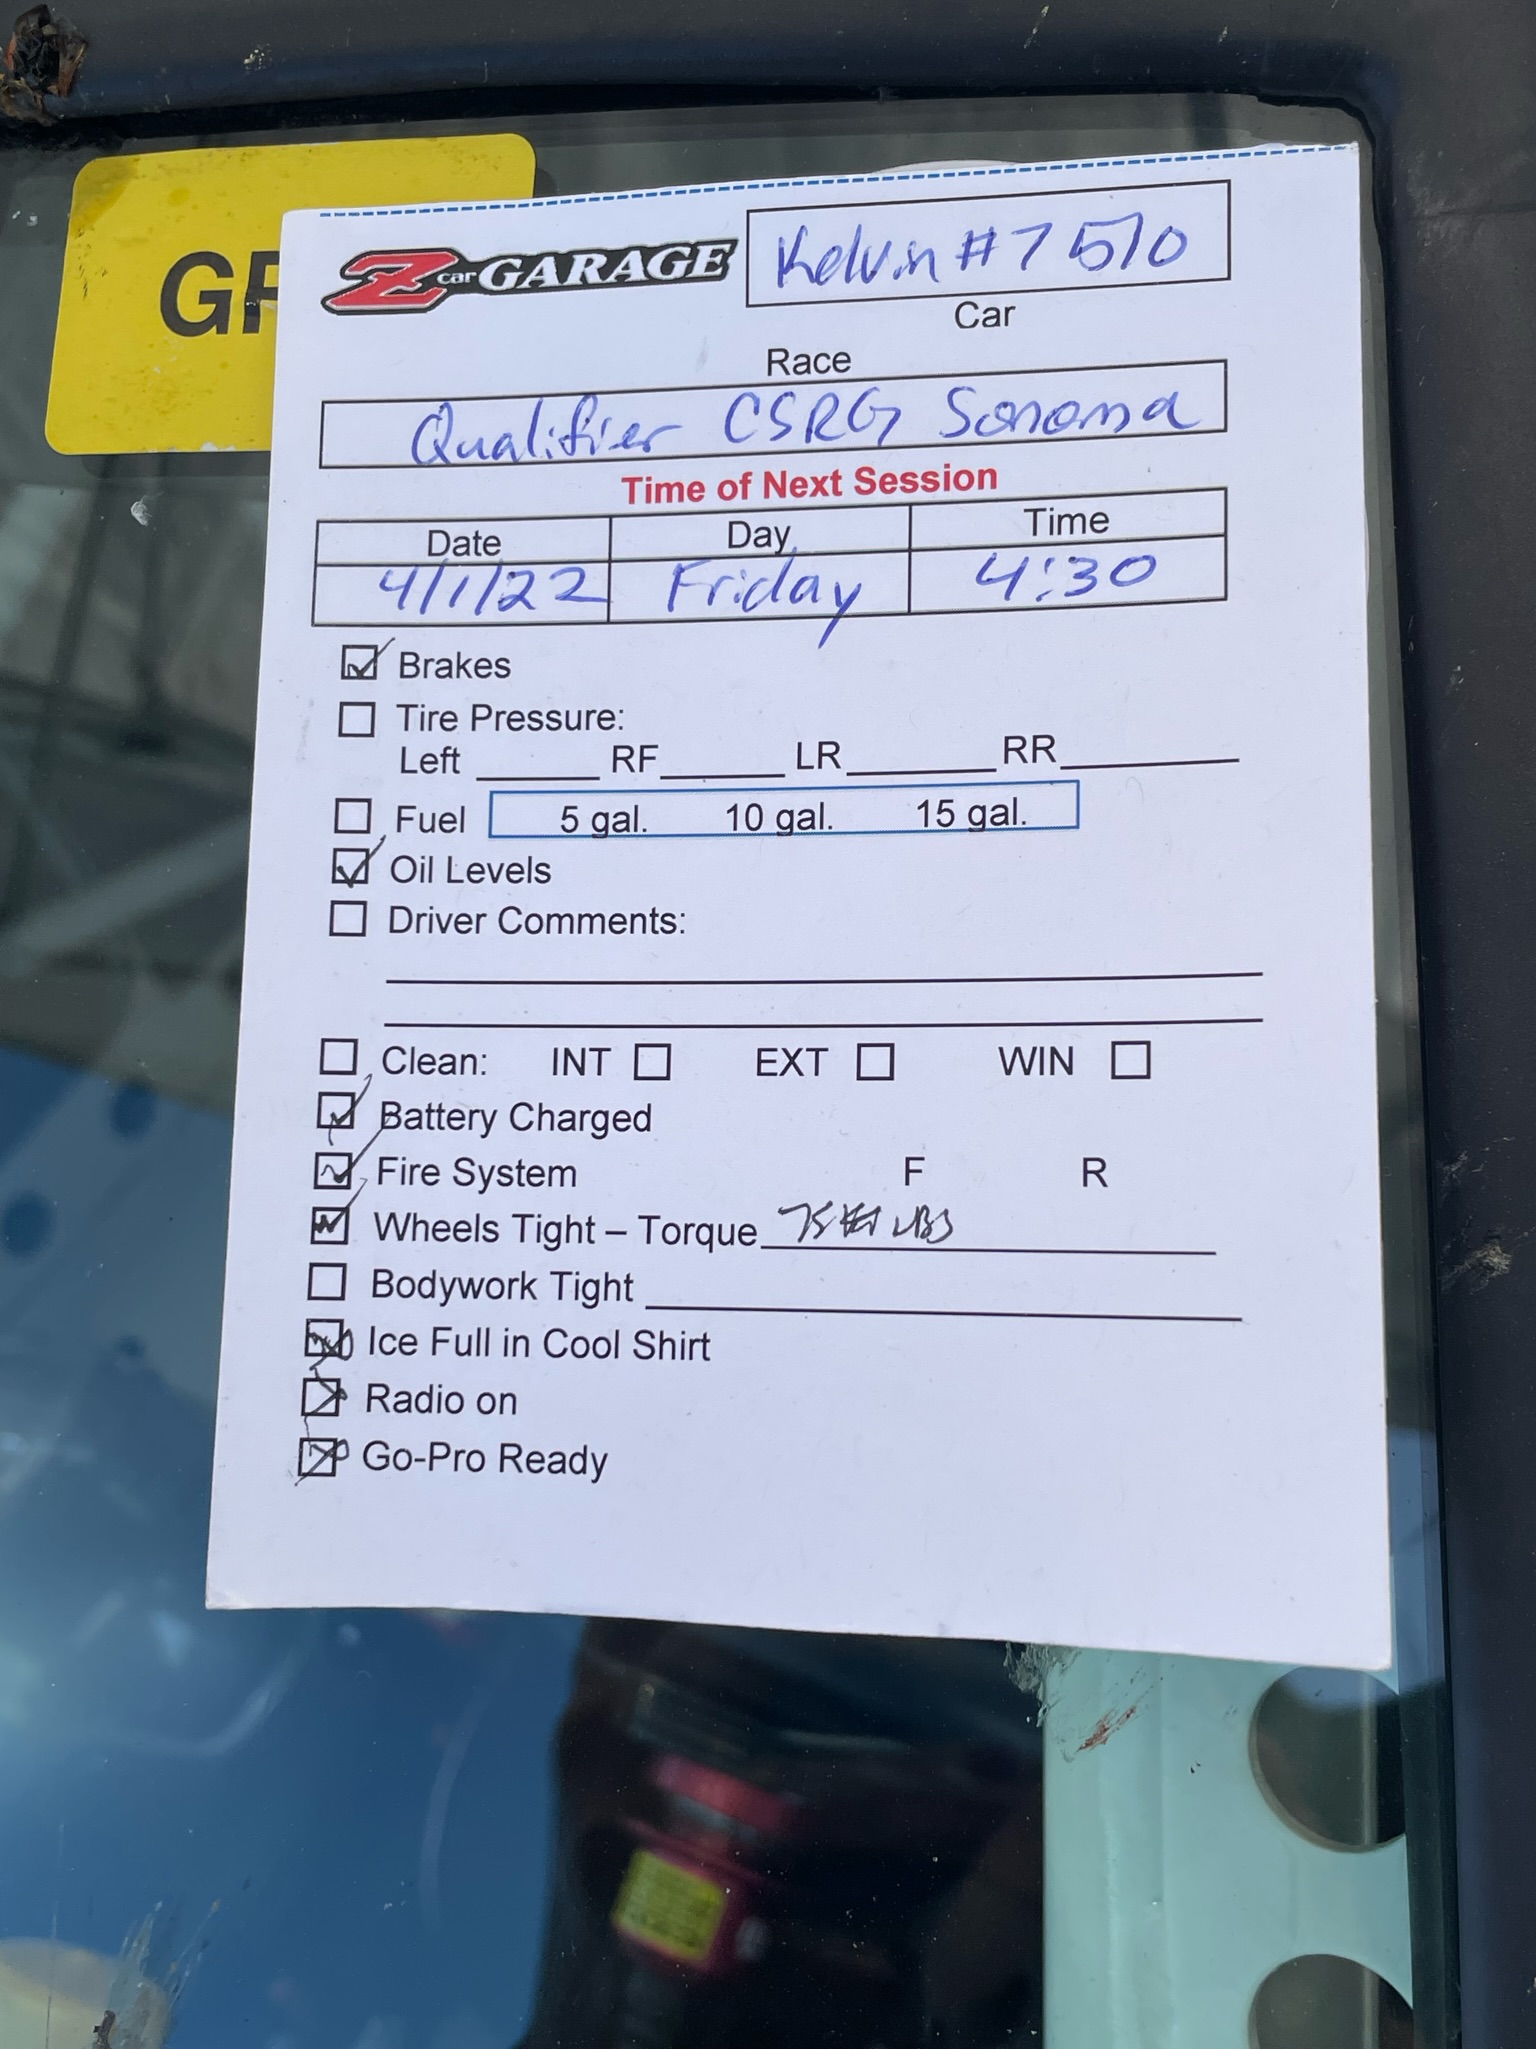 GR
Z car GARAGE
Kelvin #7 510
Car
Race
Qualifier CSRG Sonoma
Time of Next Session
Date Day Time
4/1/22 Friday 4:30
Brakes
Tire Pressure:
Left RF LR RR
Fuel 5 gal. 10 gal. 15 gal.
Oil Levels
Driver Comments:
Clean: INT EXT WIN
Battery Charged
Fire System F R
Wheels Tight – Torque 75 LBS
Bodywork Tight
Ice Full in Cool Shirt
Radio on
Go-Pro Ready